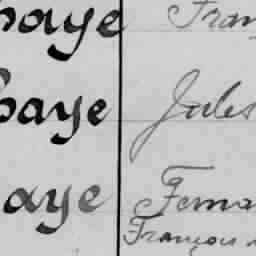 haye Fran
haye Jules
aye Ferna
François